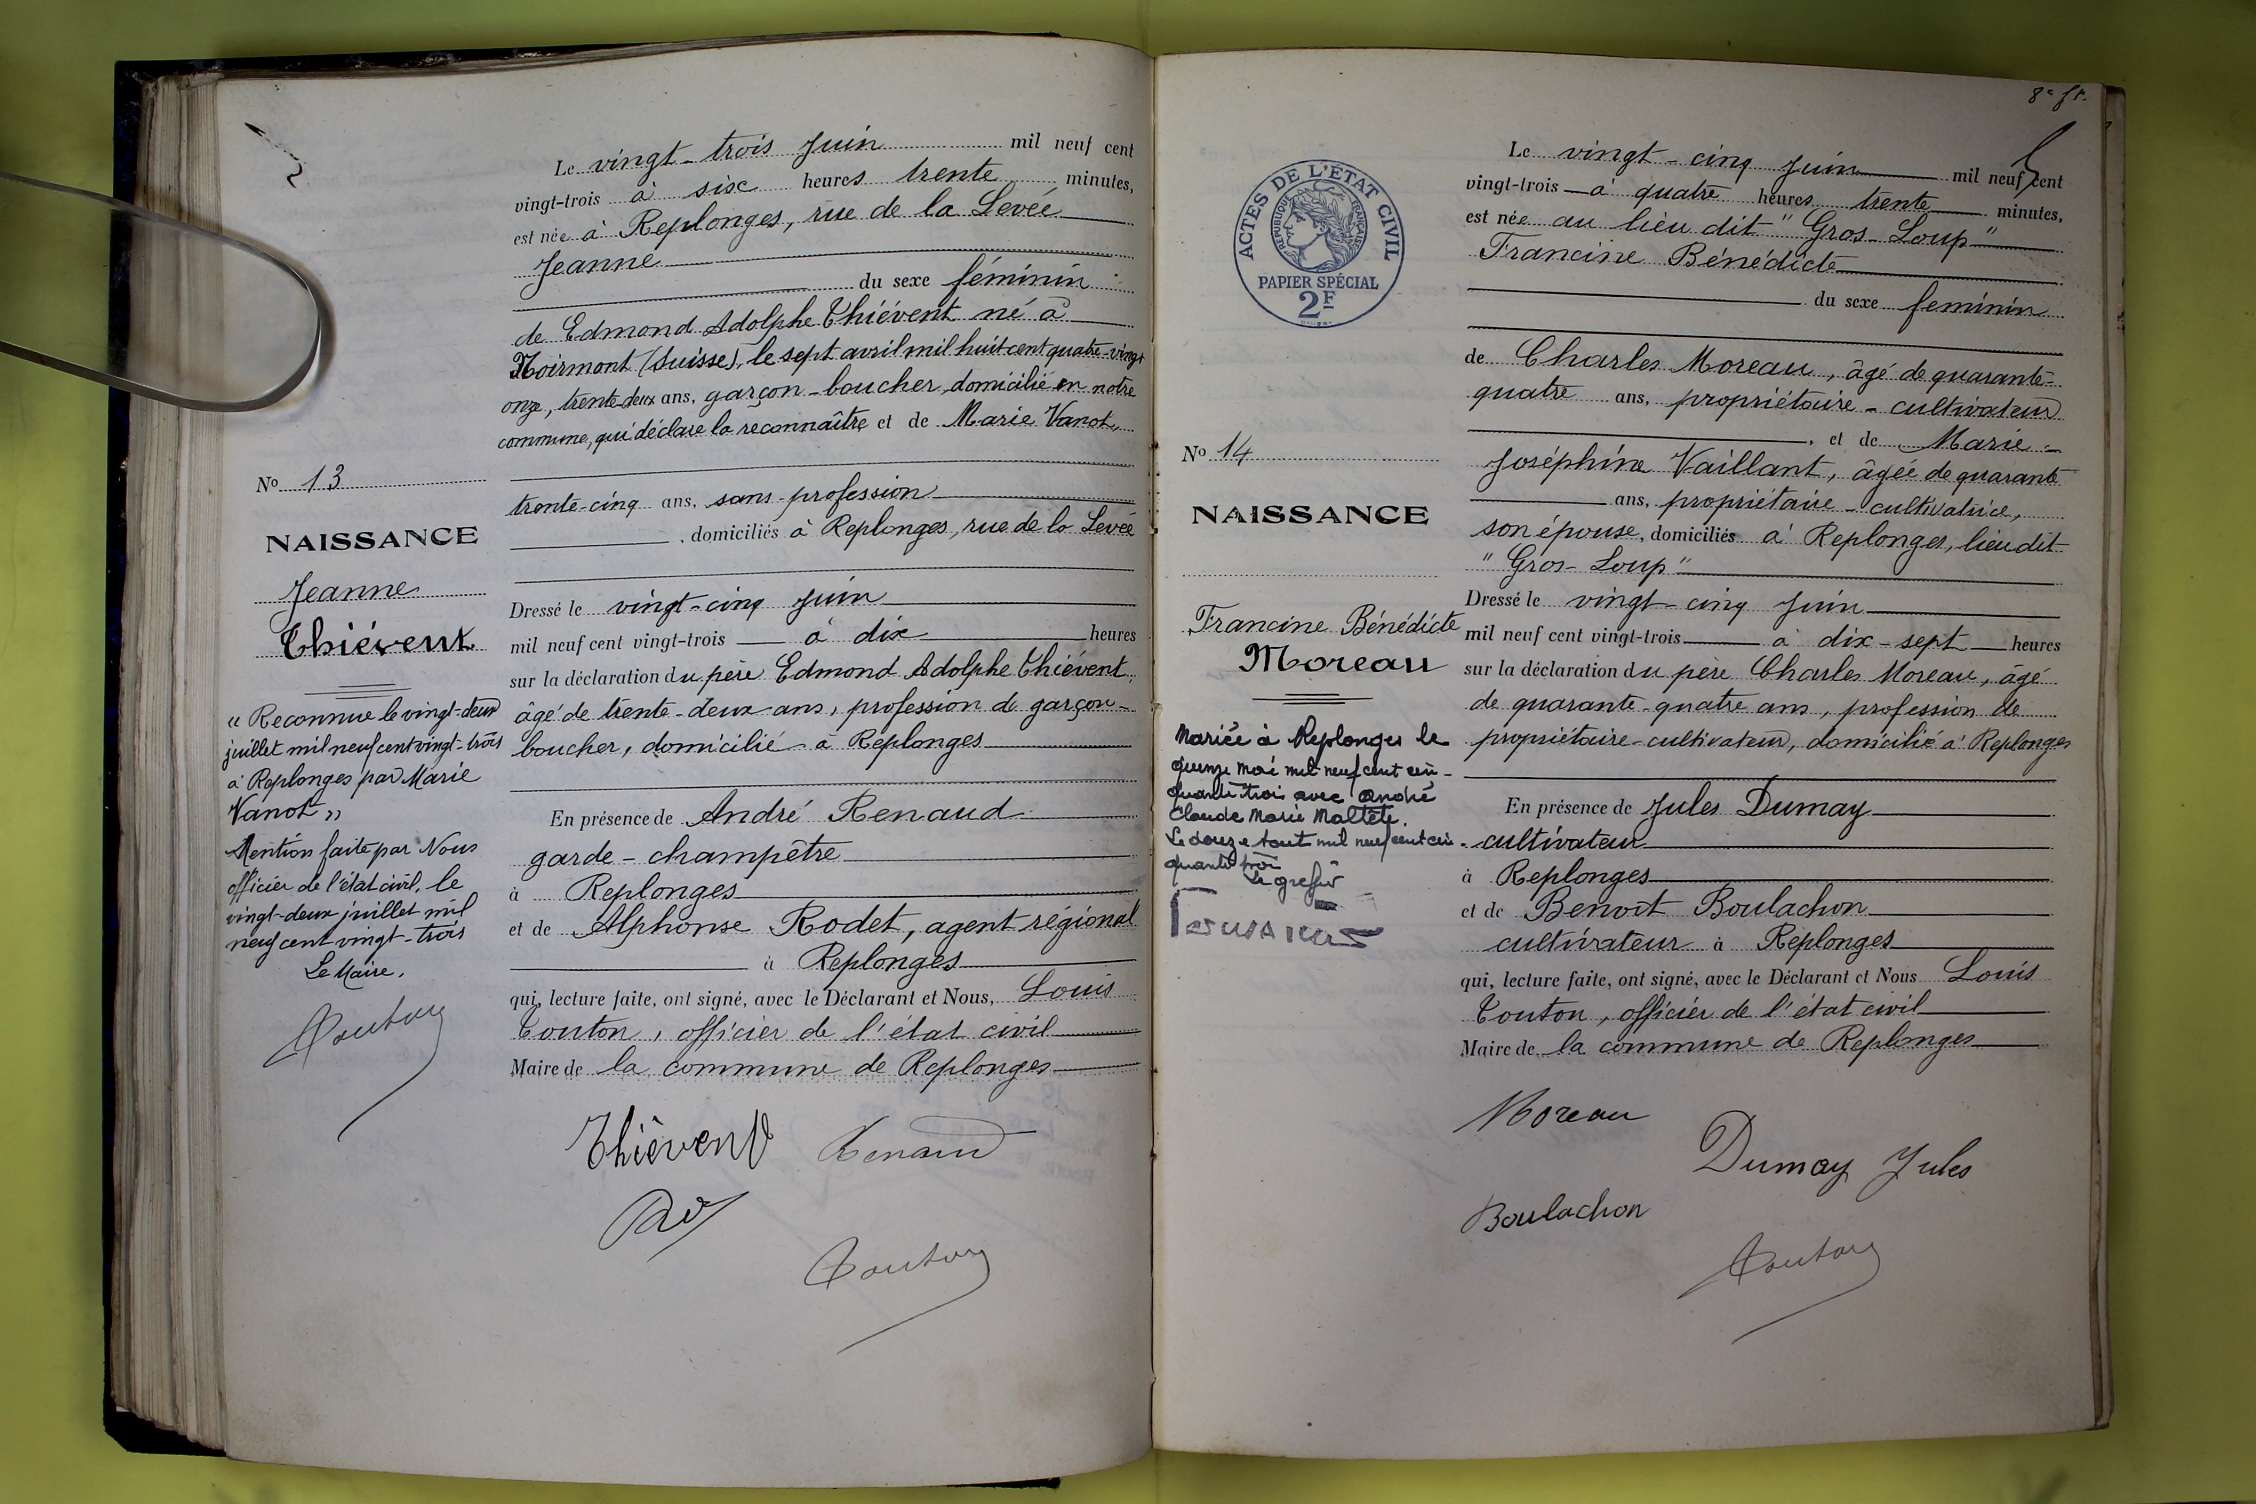 Le vingt-trois Juin mil neuf cent
vingt-trois à six heures trente minutes,
est née à Replonges, rue de la Levée
Jeanne
du sexe féminin
de Edmond Adolphe Thiévent né à
Noirmont (Suisse), le sept avril mil huit cent quatre-vingt
onze, trente-deux ans, garçon-boucher, domicilié en notre
commune, qui déclare la reconnaître et de Marie Vanot,
trente-cinq ans, sans profession
, domiciliés à Replonges, rue de la Levée
Dressé le vingt-cinq Juin
mil neuf cent vingt-trois à dix heures
sur la déclaration du père Edmond Adolphe Thiévent,
âgé de trente-deux ans, profession de garçon-
boucher, domicilié à Replonges
En présence de André Renaud
garde-champêtre
à Replonges
et de Alphonse Rodet, agent régional
à Replonges
qui, lecture faite, ont signé, avec le Déclarant et Nous, Louis
Touton, officier de l'état civil
Maire de la commune de Replonges
Thiévent Renaud
Touton
No 13
NAISSANCE
Jeanne
Thiévent
"Reconnue le vingt-deux
juillet mil neuf cent vingt-trois
à Replonges par Marie
Vanot"
Mention faite par Nous
officier de l'état civil, le
vingt-deux juillet mil
neuf cent vingt-trois
Le Maire,
Touton
8e ft.
ACTES DE L'ÉTAT CIVIL
RÉPUBLIQUE FRANÇAISE
PAPIER SPÉCIAL
2F
No 14
NAISSANCE
Francine Bénédicte
Moreau
Mariée à Replonges le
quinze mai mil neuf cent cin-
quante trois avec André
Claude Marie Maltête.
Le douze aout mil neuf cent cin-
quante trois
Le greffier
Le vingt-cinq Juin mil neuf cent
vingt-trois à quatre heures trente minutes,
est née au lieu dit "Gros-Loup"
Francine Bénédicte
du sexe feminin
de Charles Moreau, âgé de quarante-
quatre ans, propriétaire-cultivateur
, et de Marie-
Joséphine Vaillant, âgée de quarante
ans, propriétaire-cultivatrice,
son épouse, domiciliés à Replonges, lieu dit
"Gros-Loup"
Dressé le vingt-cinq Juin
mil neuf cent vingt-trois à dix-sept heures
sur la déclaration du père Charles Moreau, âgé
de quarante-quatre ans, profession de
propriétaire-cultivateur, domicilié à Replonges
En présence de Jules Dumay
cultivateur
à Replonges
et de Benoît Boulachon
cultivateur à Replonges
qui, lecture faite, ont signé, avec le Déclarant et Nous Louis
Touton, officier de l'état civil
Maire de la commune de Replonges
Moreau
Dumay Jules
Boulachon
Touton